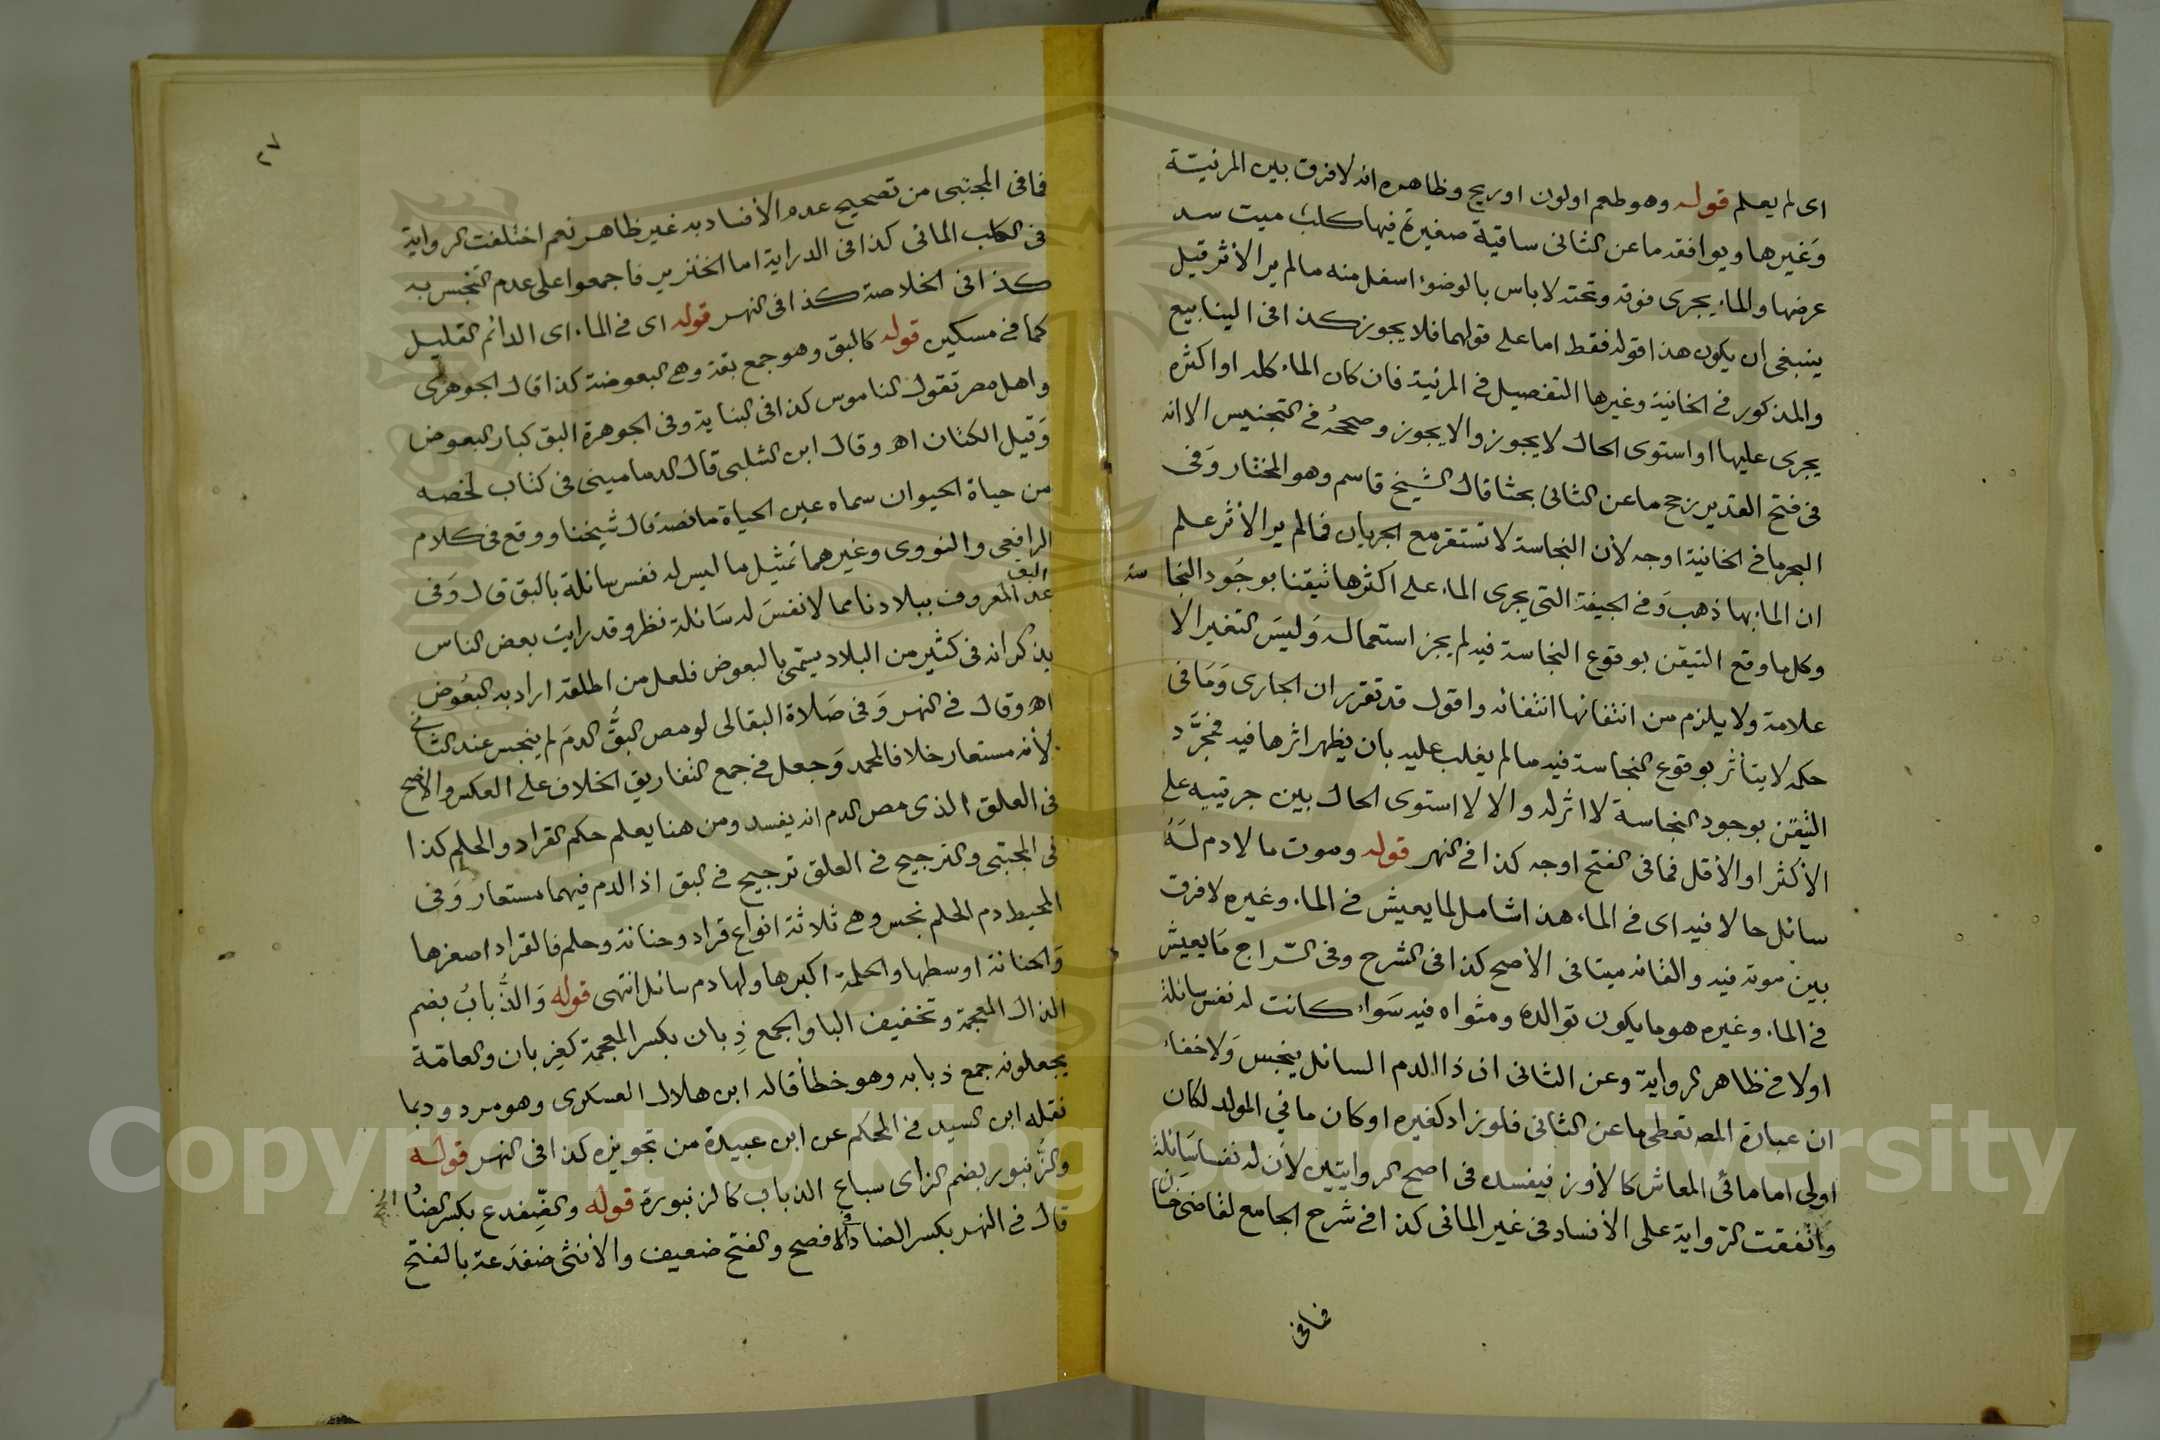 اى لم يعلم قوله وهو طعم او لون او ريح وظاهره انه لا فرق بين المرئية
وغيرها ويوافقه ما عن الثانى ساقية صغيرة فيها كلب ميت سد
عرضها والماء يجرى فوقه وتحته لا باس بالوضوء اسفل منه ما لم ير الأثر قيل
ينبغى ان يكون هذا قوله فقط اما على قولهما فلا يجوز كذا فى الينابيع
والمذكور فى الخانية وغيرها التفصيل فى المرئية فان كان الماء كله او اكثره
يجرى عليها او استوى الحال لا يجوز والا يجوز وصححه فى التجنيس الا انه
فى فتح القدير رجح ما عن الثانى بحثا قال الشيخ قاسم وهو المختار وفى
البحر ما فى الخانية اوجه لأن النجاسة لا تستقر مع الجريان فما لم ير الأثر علم
ان الماء بها ذهب وفى الجيفة التى يجرى الماء على اكثرها تيقنا بوجود النجا سة
وكل ما وقع التيقن بوقوع النجاسة فيه لم يجز استعماله وليس التغير الا
علامة ولا يلزم من انتفائها انتفائه واقول قد تقرر ان الجارى وما فى
حكمه لا يتأثر بوقوع النجاسة فيه ما لم يغلب عليه بان يظهر اثرها فيه فمجرد
التيقن بوجود النجاسة لا اثر له والا لا استوى الحال بين جريته على
الأكثر او الأقل فما فى الفتح اوجه كذا فى النهر قوله وموت ما لا دم له
سائل حالا فيه اى فى الماء هذا شامل لما يعيش فى الماء وغيره لا فرق
بين موته فيه والقائه ميتا فى الأصح كذا فى الشرح وفى السراج ما يعيش
فى الماء وغيره هو ما يكون توالده ومثواه فيه سواء كانت له نفس سائلة
اولا فى ظاهر الرواية وعن الثانى ان ذا الدم السائل ينجس ولا خفاء
ان عبارة المص تعطى ما عن الثانى فلو زاد كغيره او كان مافى المولد لكان
اولى اما مائى المعاش كالأوز فيفسده فى اصح الروايتين لأن له نفسا سائلة
واتفقت الرواية على الأفساد فى غير المائى كذا فى شرح الجامع لقاضى خان
فما فى
٢٧
فما فى المجتبى من تصحيح عدم الأفساد به غير ظاهر نعم اختلفت الرواية
فى الكلب المائى كذا فى الدراية اما الخنزير فاجمعوا على عدم التنجس به
كذا فى الخلاصة كذا فى النهر قوله اى فى الماء اى الدائم القليل
كما فى مسكين قوله كالبق وهو جمع بقة وهى البعوضة كذا قال الجوهرى
واهل مصر تقول الناموس كذا فى البناية وفى الجوهرة البق كبار البعوض
وقيل الكتان اه وقال ابن الشلبى قال الدمامينى فى كتاب لخصه
من حياة الحيوان سماه عين الحياة ما نصه قال شيخنا ووقع فى كلام
الرافعى والنووى وغيرهما تمثيل ما ليس له نفس سائلة بالبق قال وفى
عد البق المعروف ببلادنا مما لا نفس له سائلة نظر وقد رايت بعض الناس
يذكر انه فى كثير من البلاد يسمى بالبعوض فلعل من اطلقه اراد به البعوض
اه وقال فى النهر وفى صلاة البقالى لو مص البق الدم لم ينجس عند الثانى
لأنه مستعار خلافا لمحمد وجعل فى جمع التفاريق الخلاف على العكس والاصح
فى العلق الذى مص الدم انه يفسد ومن هنا يعلم حكم القراد والحلم كذا
فى المجتبى والترجيح فى العلق ترجيح فى البق اذ الدم فيهما مستعار وفى
المحيط دم الحلم نجس وهى ثلاثة انواع قراد وحنانة وحلم فالقراد اصغرها
والحنانة اوسطها والحلمة اكبرها ولها دم سائل انتهى قوله والذباب بضم
الذال المعجمة وتخفيف البا والجمع ذبان بكسر المعجمة كغربان والعامة
يجعلونه جمع ذبابه وهو خطأ قاله ابن هلال العسكرى وهو مردود بما
نقله ابن السيد فى المحكم عن ابن عبيدة من تجويزه كذا فى النهر قوله
والزنبور بضم الزاى سباع الذباب كالزنبورة قوله والضفدع بكسر الضا الخ
قال فى النهر بكسر الضاد والافصح والفتح ضعيف والأنثى ضفدعة بالفتح
Copyright © King Saud University
1957